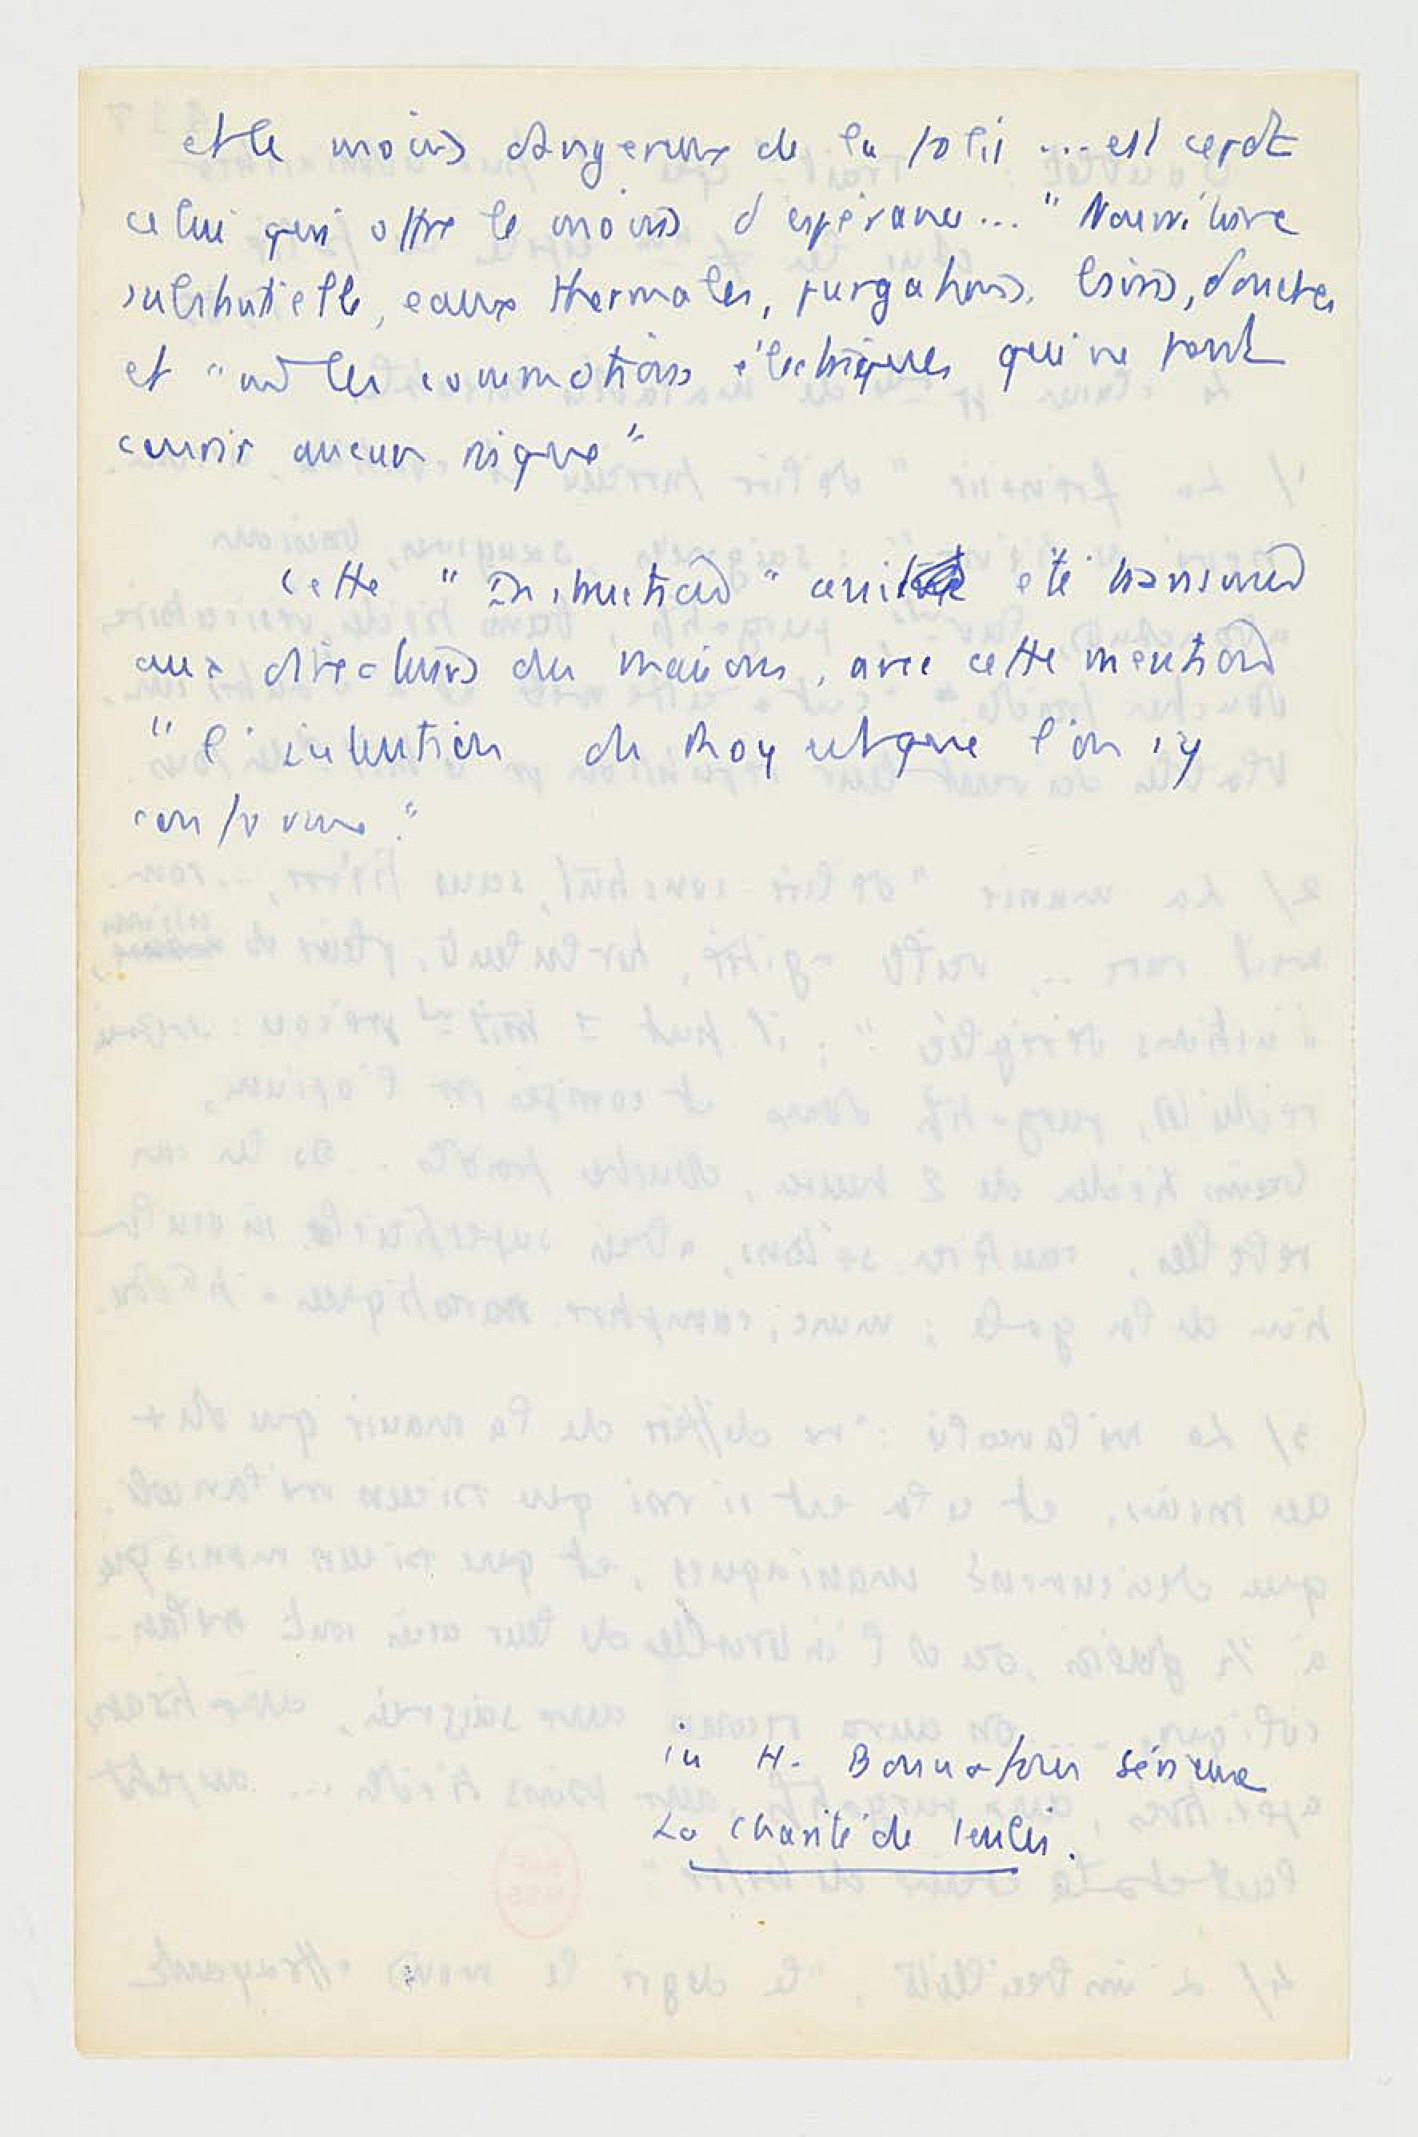 et le moins dangereux de la folie ... est cepdt
celui qui offre le moins d'espérance... " Nourriture
substantielle, eaux thermales, purgations, bains, douches
et " md les commotions électriques qui ne font
courir aucun risque "
Cette " Instruction " avait été
aux directeurs des maisons, avec cette mention
" l'intention du Roy est que l'on s'y
conforme. "
in H. Bonnafous Sérieux
La Charité de Senlis.